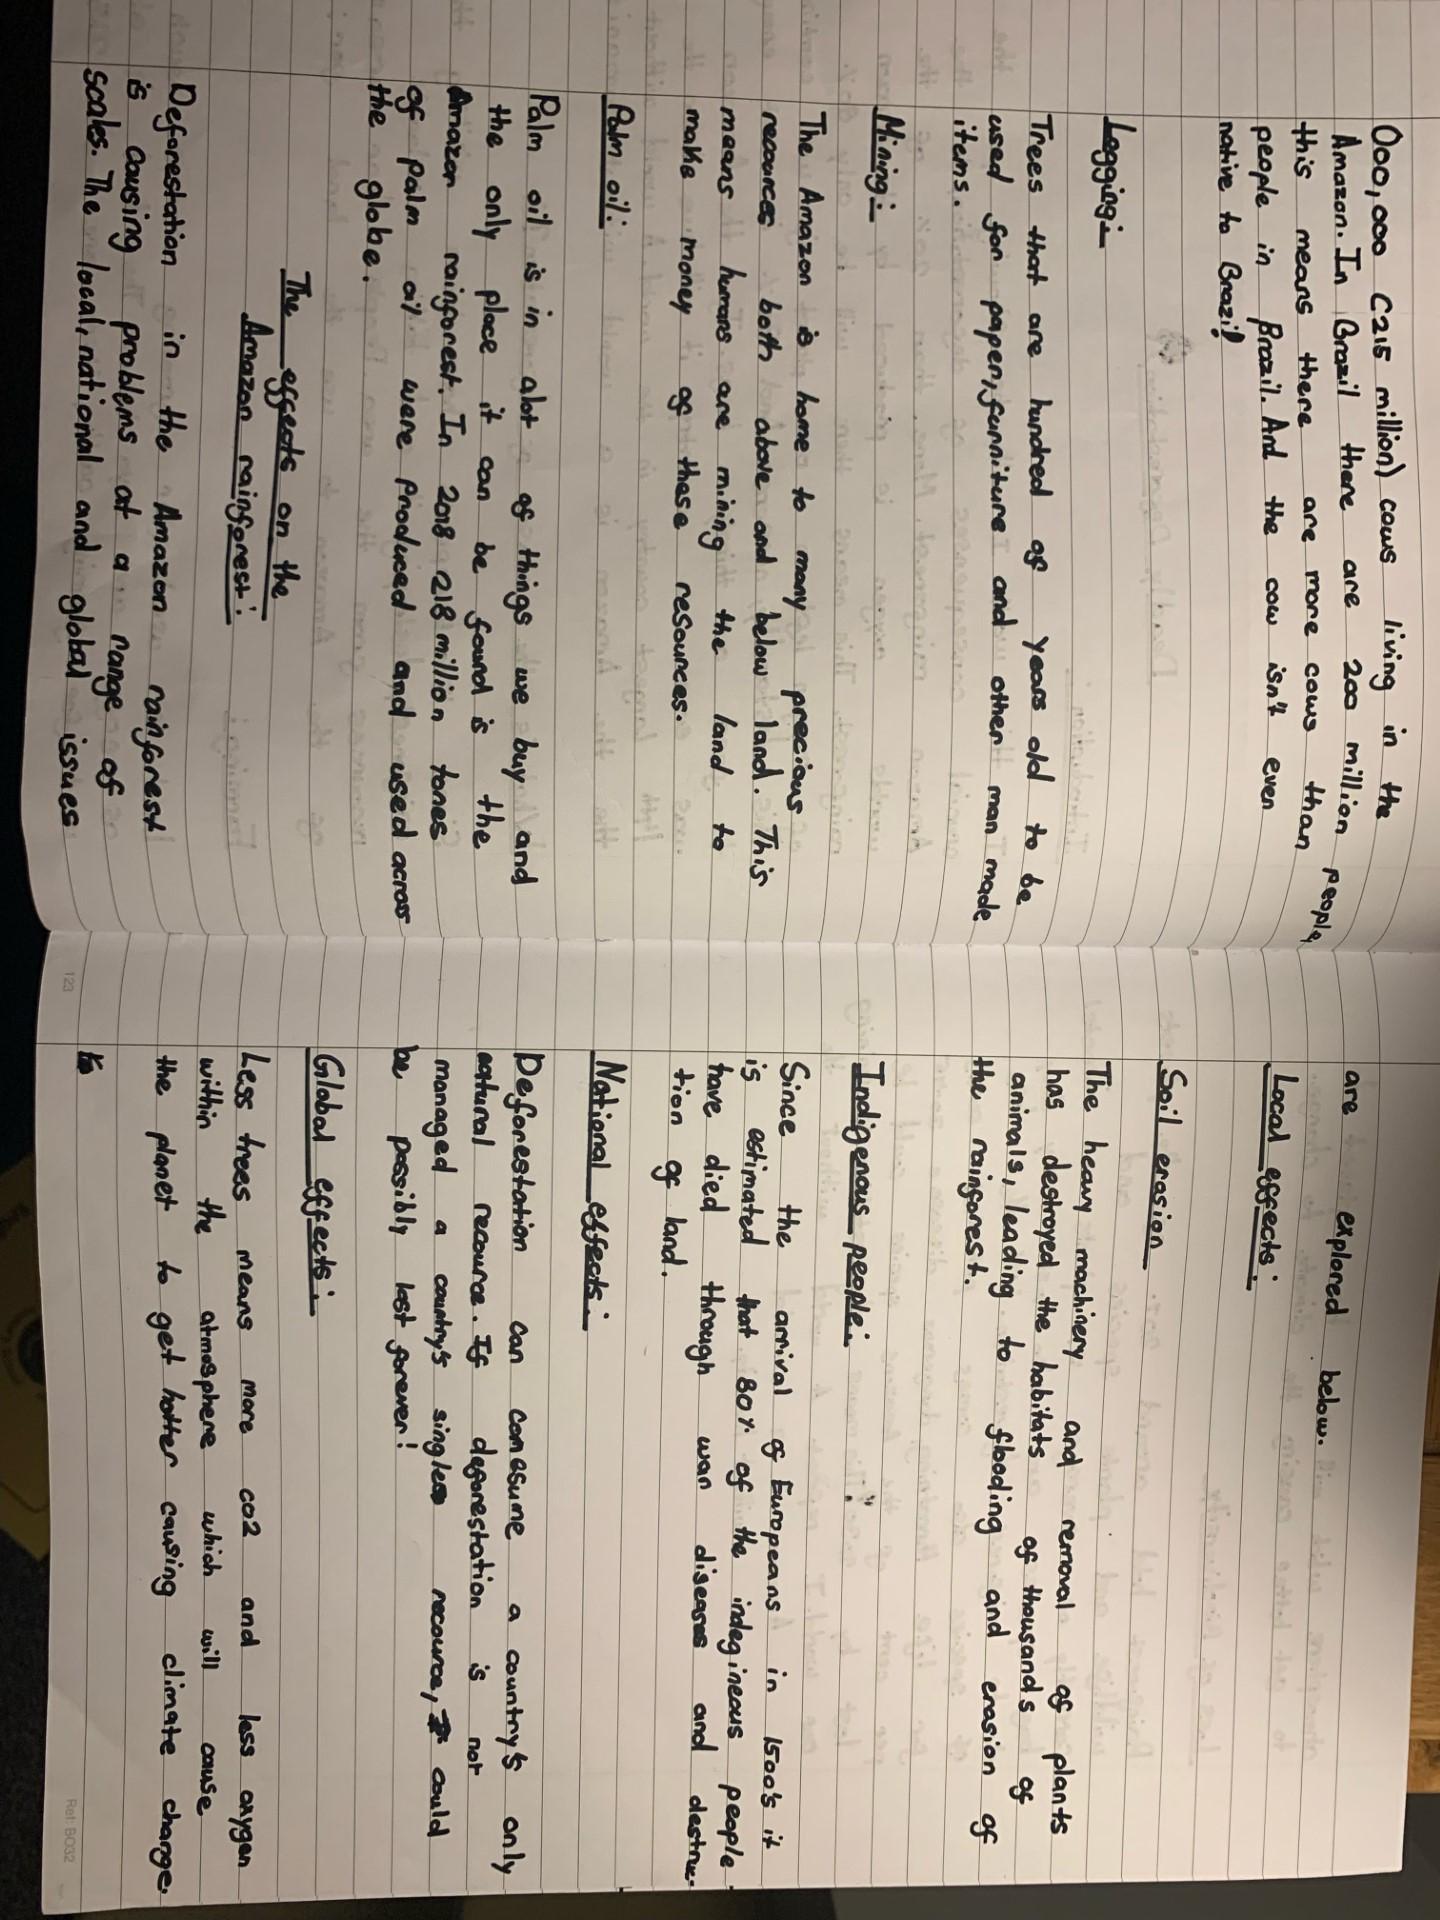 000,000 (215 million) cows living in the
Amazon. In Brazil there are 200 million people,
this means there are more cows than
people in Brazil. And the cow isn't even
native to Brazil!
Logging:
Trees that are hundred of years old to be
used for paper, furniture and other man made
items.
Mining:
The Amazon is home to many precious
recources both above and below land. This
means humans are mining the land to
make money of these resources.
Palm oil:
Palm oil is in alot of things we buy and
the only place it can be found is the
Amazon rainforest. In 2018 218 million tones
of palm oil were produced and used across
the globe.
The effects on the
Amazon rainforest:
Deforestation in the Amazon rainforest
is causing problems at a range of
scales. The local, national and global issues
123
are explored below.
Local effects:
Soil erosion
The heavy machinery and removal of plants
has destroyed the habitats of thousands of
animals, leading to flooding and erosion of
the rainforest.
Indigenous people:
Since the arrival of Europeans in 1500's it
is estimated that 80% of the indegineous people
have died through war diseases and destruc-
tion of land.
National effects:
Deforestation can comsume a country's only
natural recource. If deforestation is not
managed a country's single recource, could
be possibly lost forever!
Global effects:
Less trees means more co2 and less oxygen
within the atmosphere which will cause
the planet to get hotter causing climate change.
Ref: B032